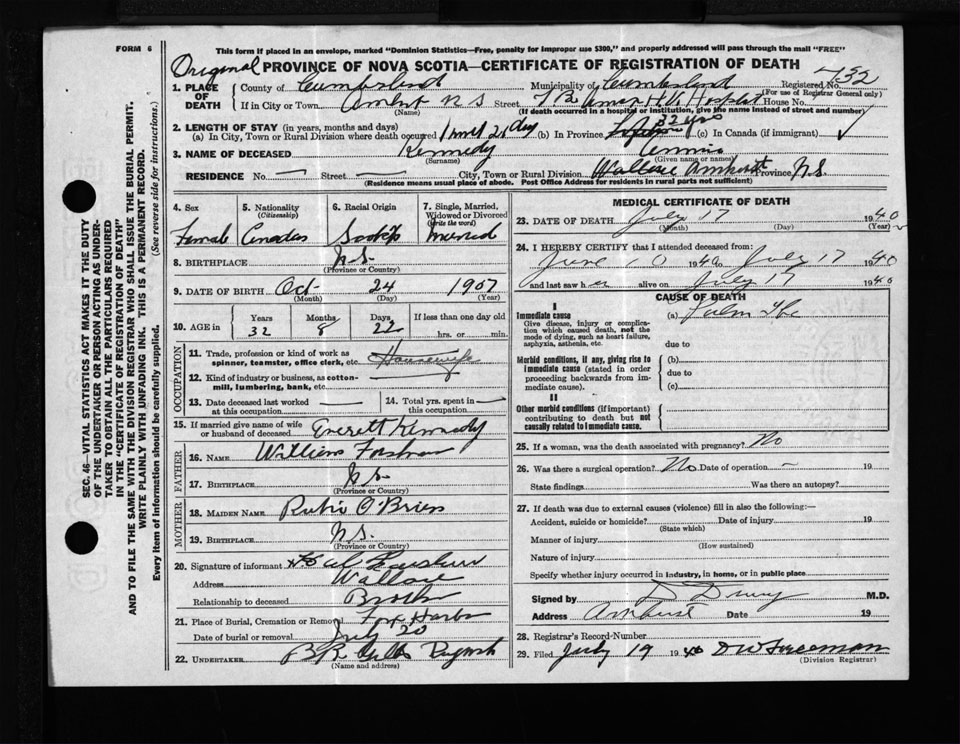 FORM 6
This form if placed in an envelope, marked "Dominion Statistics—Free, penalty for improper use $300," and properly addressed will pass through the mail "FREE"
Original PROVINCE OF NOVA SCOTIA—CERTIFICATE OF REGISTRATION OF DEATH
1. PLACE OF DEATH County of Cumberland Municipality of Cumberland Registered No. 732
(For use of Registrar General only)
If in City or Town Amhst N S Street House No.
(Name) (If death occurred in a hospital or institution, give the name instead of street and number)
2. LENGTH OF STAY (in years, months and days) 32 yrs
(a) In City, Town or Rural Division where death occured 1 mnt 21 day (b) In Province (c) In Canada (if immigrant)
3. NAME OF DECEASED Kennedy Annie
(Surname) (Given name or names)
RESIDENCE No. — Street — City, Town or Rural Division Wallace Amherst Province N.S.
(Residence means usual place of abode. Post Office Address for residents in rural parts not sufficient)
SEC. 46—VITAL STATISTICS ACT MAKES IT THE DUTY
OF THE UNDERTAKER OR PERSON ACTING AS UNDER-
TAKER TO OBTAIN ALL THE PARTICULARS REQUIRED
IN THE "CERTIFICATE OF REGISTRATION OF DEATH"
AND TO FILE THE SAME WITH THE DIVISION REGISTRAR WHO SHALL ISSUE THE BURIAL PERMIT.
WRITE PLAINLY WITH UNFADING INK. THIS IS A PERMANENT RECORD.
Every item of Information should be carefully supplied. (See reverse side for instructions.)
4. Sex 5. Nationality (Citizenship) 6. Racial Origin 7. Single, Married, Widowed or Divorced (Write the word)
Female Canadan Scotch married
8. BIRTHPLACE N.S.
(Province or Country)
9. DATE OF BIRTH Oct 24 1907
(Month) (Day) (Year)
10. AGE in Years Months Days If less than one day old
32 8 22 hrs. or min.
OCCUPATION
11. Trade, profession or kind of work as spinner, teamster, office clerk, etc. Housewife
12. Kind of industry or business, as cotton-mill, lumbering, bank, etc.
13. Date deceased last worked at this occupation —
14. Total yrs. spent in this occupation —
15. If married give name of wife or husband of deceased Everett Kennedy
FATHER
16. NAME William
17. BIRTHPLACE N.S.
(Province or Country)
MOTHER
18. MAIDEN NAME Rubie O'Brien
19. BIRTHPLACE N.S.
(Province or Country)
20. Signature of informant
Address Wallace
Relationship to deceased Brother
21. Place of Burial, Cremation or Removal Fox Harbor
Date of burial or removal July 20
22. UNDERTAKER B R Pugwash
(Name and address)
MEDICAL CERTIFICATE OF DEATH
23. DATE OF DEATH July 17 1940
(Month) (Day) (Year)
24. I HEREBY CERTIFY that I attended deceased from:
June 10 1940 to July 17 1940
and last saw her alive on July 17 1940
CAUSE OF DEATH
I
Immediate cause (a) Pulm Tbc
Give disease, injury or complication which caused death, not the mode of dying, such as heart failure, asphyxia, asthenia, etc.
due to
Morbid conditions, if any, giving rise to immediate cause (stated in order proceeding backwards from immediate cause).
(b)
due to
(c)
II
Other morbid conditions (if important) contributing to death but not causally related to immediate cause.
25. If a woman, was the death associated with pregnancy? No
26. Was there a surgical operation? No Date of operation — 19
State findings Was there an autopsy?
27. If death was due to external causes (violence) fill in also the following:—
Accident, suicide or homicide? Date of injury 19
(State which)
Manner of injury
(How sustained)
Nature of injury
Specify whether injury occurred in industry, in home, or in public place
Signed by D Drury M.D.
Address Amherst Date 19
28. Registrar's Record-Number
29. Filed July 19 1940 D W Freeman
(Division Registrar)